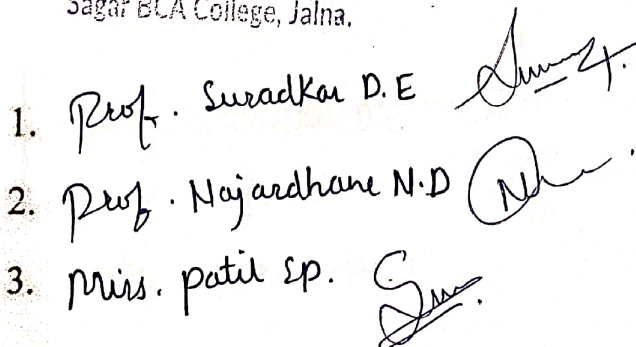 Sagar BCA College, Jalna.
1. Prof. Suradkar D.E
2. Prof. Najardhane N.D
3. Miss. Patil S.P.